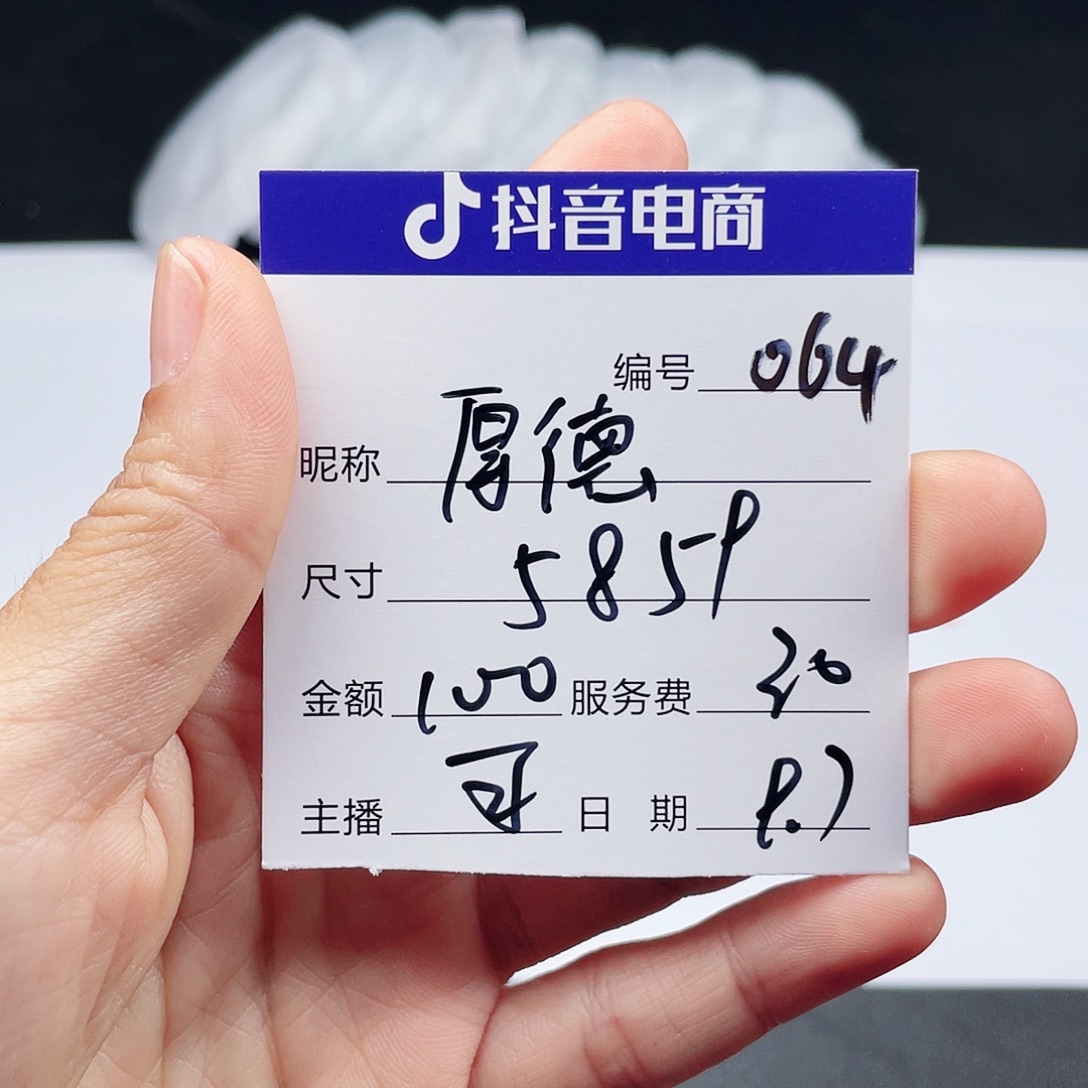 抖音电商
编号 064
昵称 厚德
尺寸 5859
金额 100 服务费 20
主播
日 期 9.7